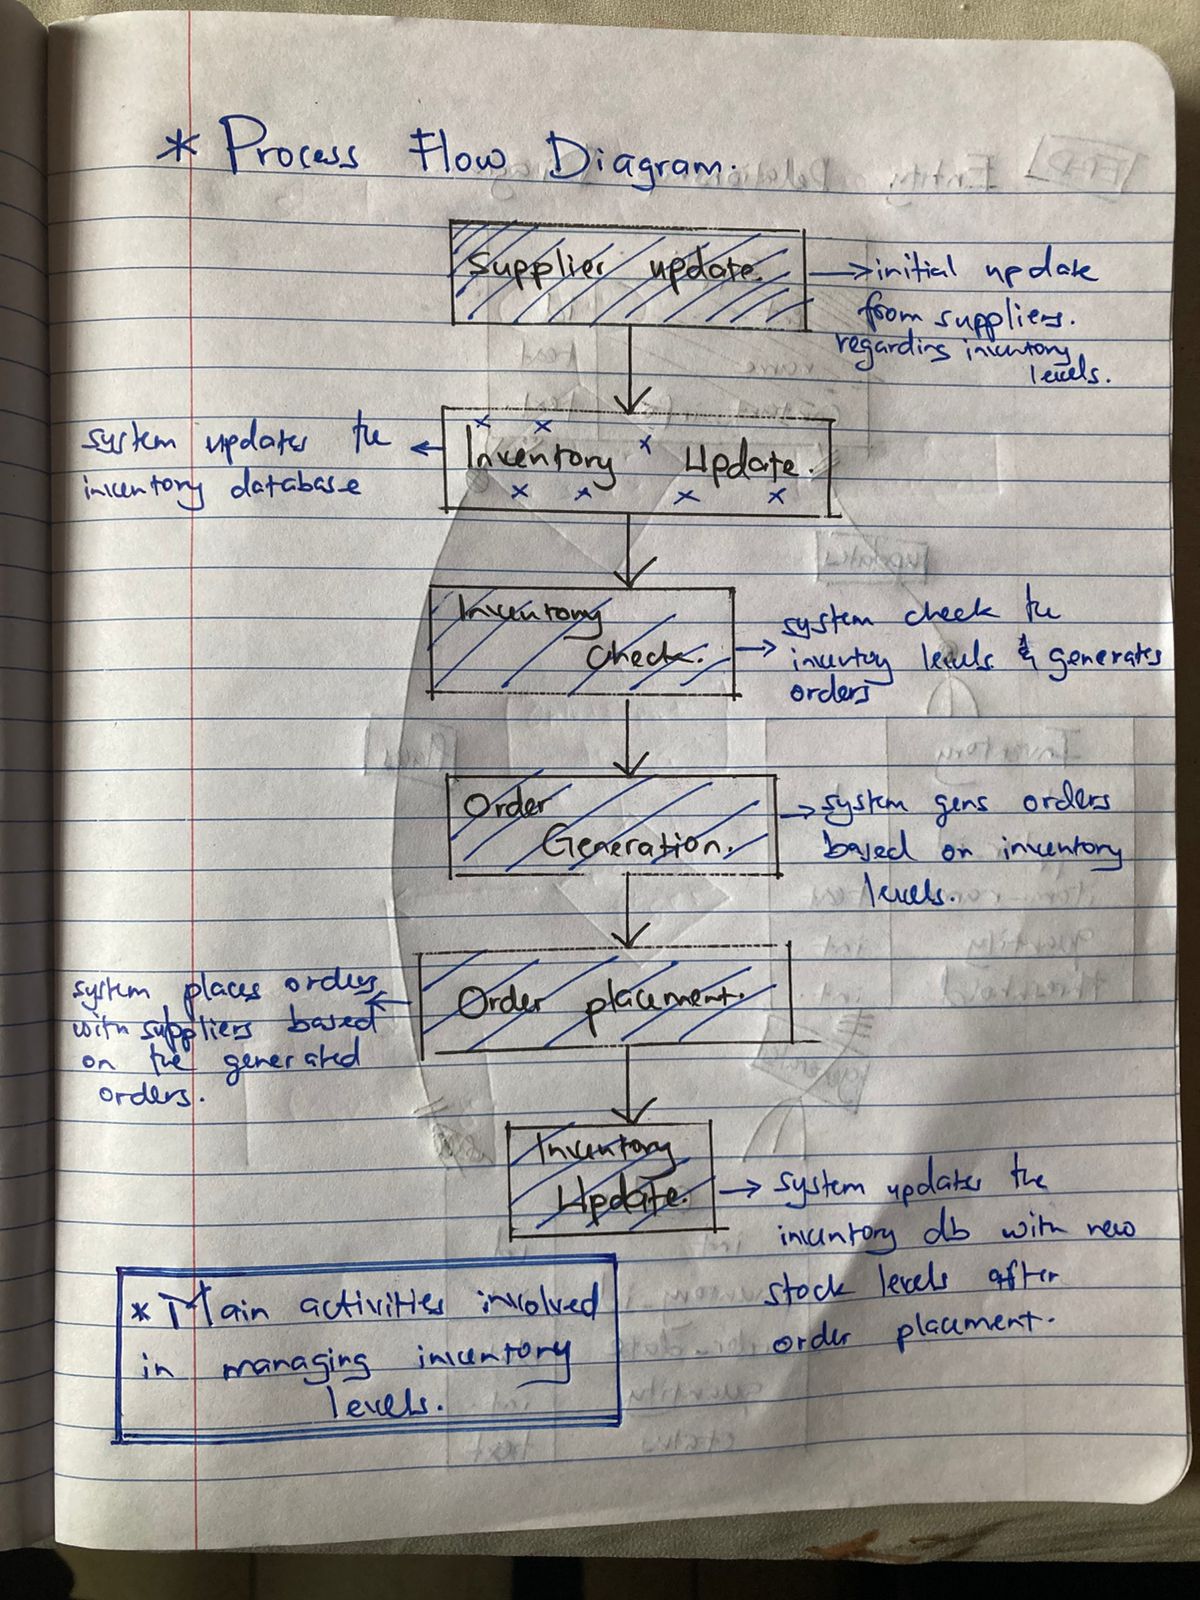 * Process Flow Diagram.
Supplier update.
→ initial update
from suppliers.
regarding inventory
levels.
Inventory Update.
system updates the
inventory database
Inventory
Check.
system check the
inventory levels & generates
orders
Order
Generation.
system gens orders
based on inventory
levels.
Order placement.
system places orders
with suppliers based
on the generated
orders.
Inventory
Update.
system updates the
inventory db with new
stock levels after
order placement.
* Main activities involved
in managing inventory
levels.